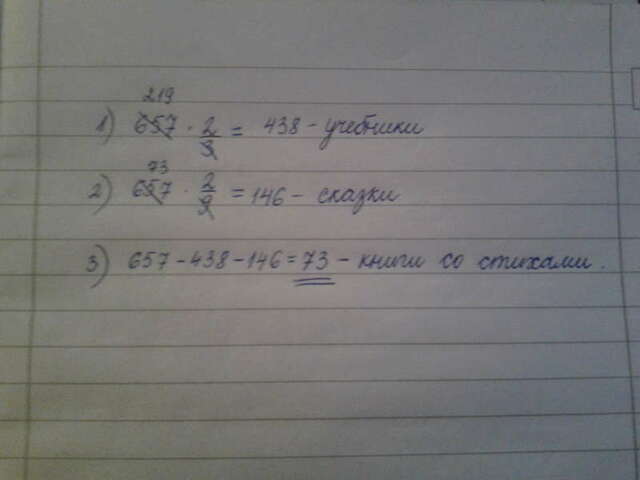 219
1) 657 · 2/3 = 438 - учебники
73
2) 657 · 2/9 = 146 - сказки
3) 657 - 438 - 146 = 73 - книги со стихами.